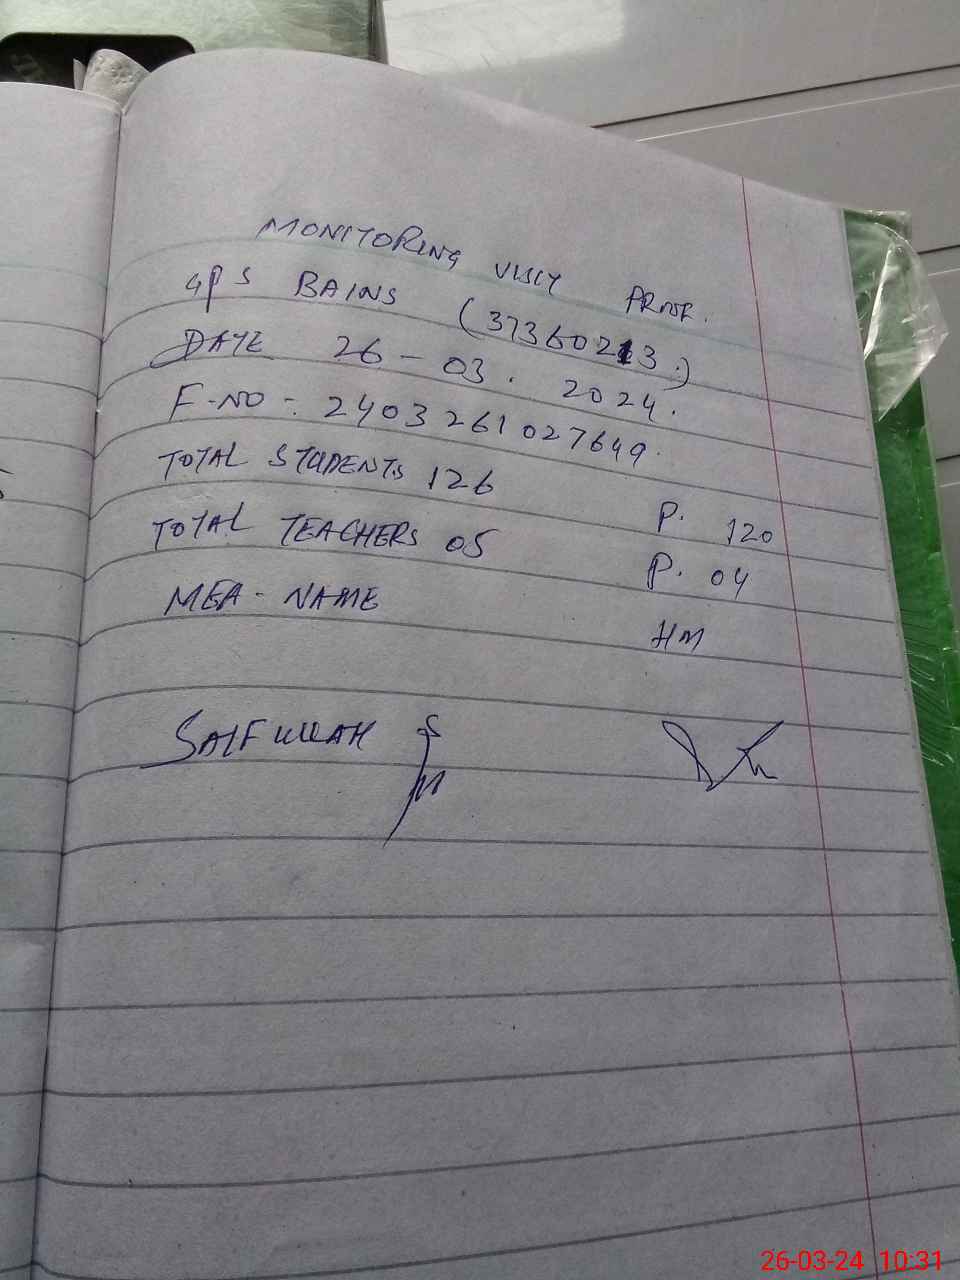 MONITORING VISIT PROOF.
GPS BAINS (37360213.)
DATE 26-03.2024.
F-NO-. 2403261027649.
TOTAL STUDENTS 126 P. 120
TOTAL TEACHERS 05 P. 04
MEA-NAME HM
SAIFULLAH
26-03-24 10:31